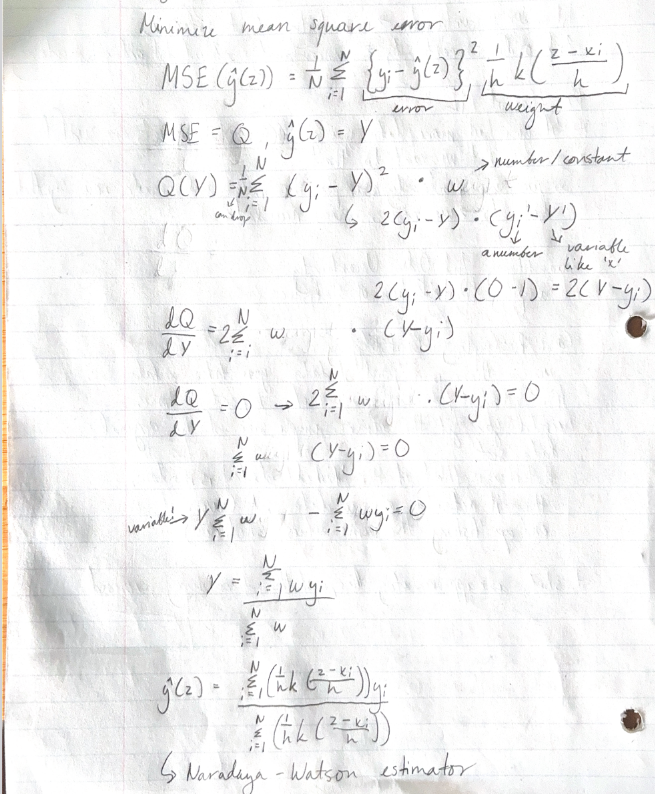 Minimize mean square error
MSE(ŷ(z)) = 1/N Σ_{i=1}^{N} {y_i - ŷ(z)}² 1/h k((z - x_i)/h)
error weight
MSE = Q, ŷ(z) = Y
→ number/constant
Q(Y) = 1/N Σ_{i=1}^{N} (y_i - Y)² · w
can drop ↳ 2(y_i - Y) · (y_i' - Y')
a number variable
like 'x'
2(y_i - Y) · (0 - 1) = 2(Y - y_i)
dQ/dY = 2 Σ_{i=i}^{N} w · (Y - y_i)
dQ/dY = 0 → 2 Σ_{i=1}^{N} w · (Y - y_i) = 0
Σ_{i=1}^{N} w (Y - y_i) = 0
variable! → Y Σ_{i=1}^{N} w - Σ_{i=1}^{N} w y_i = 0
Y = Σ_{i=1}^{N} w y_i / Σ_{i=1}^{N} w
ŷ(z) = Σ_{i=1}^{N} (1/h k((z - x_i)/h)) y_i / Σ_{i=1}^{N} (1/h k((z - x_i)/h))
↳ Naradaya-Watson estimator